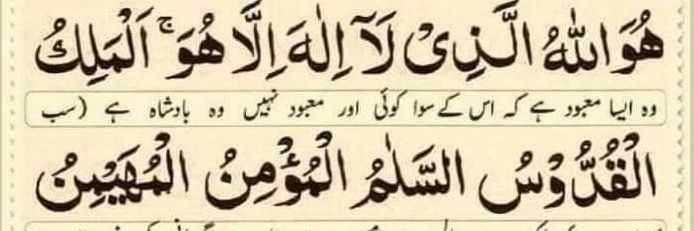 هُوَ اللّٰهُ الَّذِیْ لَاۤ اِلٰهَ اِلَّا هُوَ ۚ اَلْمَلِكُ
وہ ایسا معبود ہے کہ اس کے سوا کوئی اور معبود نہیں وہ بادشاہ ہے (سب
الْقُدُّوْسُ السَّلٰمُ الْمُؤْمِنُ الْمُهَیْمِنُ